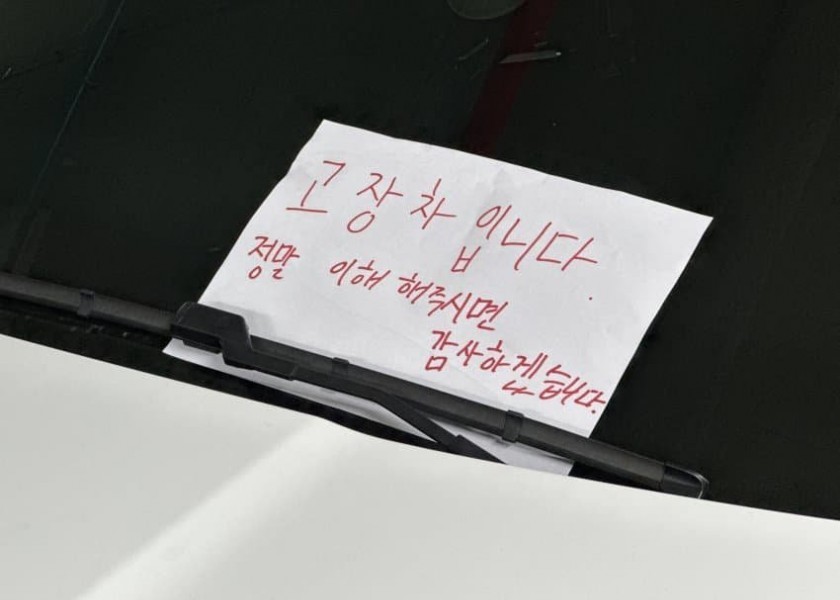 고장차 입니다.
정말 이해 해주시면
감사하겠습니다.